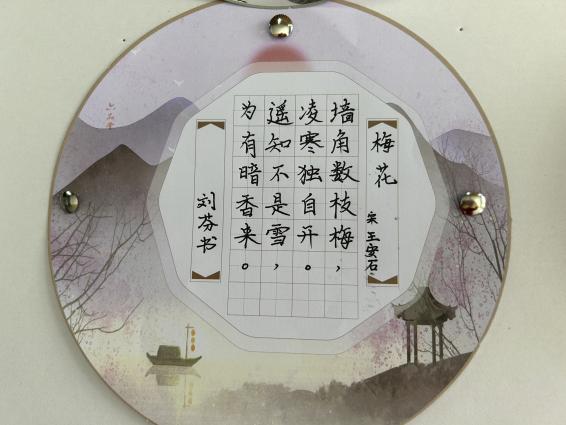 梅花
宋 王安石
墙角数枝梅，
凌寒独自开。
遥知不是雪，
为有暗香来。
刘芬书